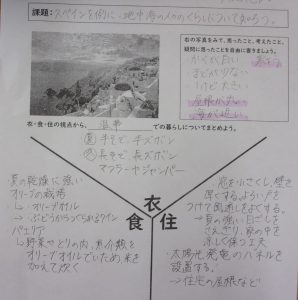 課題：スペインを例に、地中海の人々のくらしについて知ろう。
右の写真をみて、思ったこと、考えたこと、
疑問に思ったことを自由に書きましょう。
かべが白い
まどが少ない
屋根が
海が近い
衣・食・住の視点から、温帯での暮らしについてまとめよう。
夏 半そで、半ズボン
冬 長そで、長ズボン
マフラーやジャンパー
衣
食
住
夏の乾燥に強い
オリーブの栽培
→オリーブオイル
→ぶどうからつくられるワイン
パエリア
→野菜やとりの肉、魚介類を
オリーブオイルでいため、米を
加えて炊く
窓を小さくし、壁を
厚くするよう戸を
つけて風通しをよくする。
→夏の強い日ざしを
さえぎり、家の中を
涼しく保つ工夫
・太陽光発電のパネルを
設置する。
→住宅の屋根など